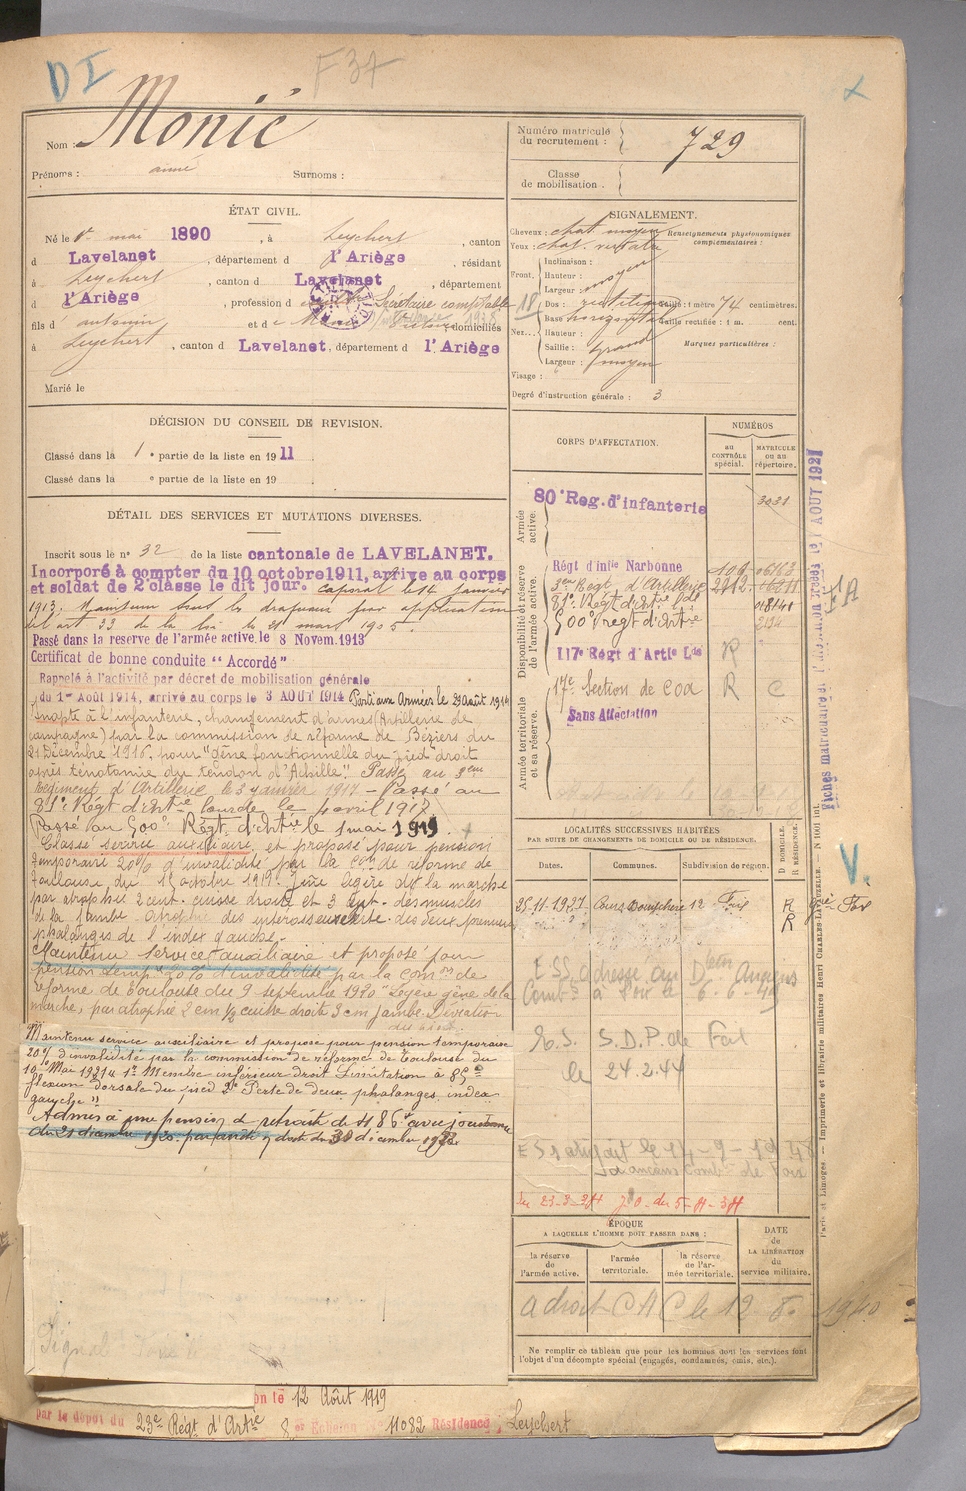 D I
F 37
Nom : Monié
Prénoms : aimé
Surnoms :
Numéro matricule du recrutement : 729
Classe de mobilisation :
ÉTAT CIVIL.
Né le 1er mai 1890, à Leychert, canton
d Lavelanet, département d l'Ariège, résidant
à Leychert, canton d Lavelanet, département
d l'Ariège, profession d Secrétaire comptable
fils d' antonin et d e domiciliés
à Leychert, canton d Lavelanet, département d l'Ariège
Marié le
SIGNALEMENT.
Cheveux : chat. moyen
Yeux : chat.
Renseignements physionomiques complémentaires :
Front.
Inclinaison :
Hauteur :
Largeur : moyen
Nez.
Dos : rectiligne
Base horizontal
Hauteur :
Saillie : grand
Largeur : moyen
Taille : 1 mètre 74 centimètres.
Taille rectifiée : 1 m. cent.
Marques particulières :
Visage :
Degré d'instruction générale : 3
DÉCISION DU CONSEIL DE REVISION.
Classé dans la 1e partie de la liste en 1911.
Classé dans la e partie de la liste en 19
DÉTAIL DES SERVICES ET MUTATIONS DIVERSES.
Inscrit sous le n° 32 de la liste cantonale de LAVELANET.
Incorporé à compter du 10 octobre 1911, arrive au corps
et soldat de 2e classe le dit jour. Caporal le 14 janvier
1913. Maintenu sous les drapeaux par application
de l'art 33 de la loi le 21 mars 1905.
Passé dans la reserve de l'armée active, le 8 Novem. 1913
Certificat de bonne conduite "Accordé"
Rappelé à l'activité par décret de mobilisation générale
du 1er Août 1914, arrivé au corps le 3 AOUT 1914 Parti aux Armées le 29 août 1914
Inapte à l'infanterie, changement d'armes (Artillerie de
campagne) par la commission de réforme de Béziers du
21 Décembre 1916. pour "gêne fonctionnelle du pied droit
après ténotomie du tendon d'Achille". Passé au 3eme
Régiment d'Artillerie le 3 janvier 1917 - Passé au
81e Régt d'Artie lourde le 4 avril 1917
Passé au 500e Régt d'Artie le 1 mai 1919.
Classé service auxiliaire, et proposé pour pension
temporaire 20% d'invalidité par la Con de réforme de
Toulouse du 15 octobre 1919. Gêne légère de la marche
par atrophie 2 cent. cuisse droite et 3 cent. des muscles
de la jambe atrophie des interosseux des deux premières
phalanges de l'index gauche.
Maintenu service auxiliaire et proposé pour
pension temp. 20% d'invalidité par la comon de
réforme de Toulouse du 9 septembre 1920 "Légère gêne de la
marche, par atrophie 2 cm 1/2 cuisse droite 3 cm jambe. Déviation
Maintenu service auxiliaire et proposé pour pension temporaire
20% d'invalidité par la commission de réforme de Toulouse du
10 Mai 1921 1° Membre inférieur droit limitation à 85°
flexion dorsale du pied 2° Perte de deux phalanges index
gauche"
Admis à une pension de retraite de 486f avec jouissance
du 21 décembre 1920. par arrêté
CORPS D'AFFECTATION.
NUMÉROS
au CONTRÔLE spécial.
MATRICULE ou au répertoire.
Armée active.
80e Reg. d'infanterie 3031
Disponibilité et réserve de l'armée active.
Régt d'infie Narbonne
3eme Regt d'Artillerie 2212
81e Régt d'Artie Lde
500e régt d'Artie 2134
117e Régt d'Artie Lde R
Armée territoriale et sa réserve.
17e Section de COA R C
Sans Affectation
LOCALITÉS SUCCESSIVES HABITÉES
PAR SUITE DE CHANGEMENTS DE DOMICILE OU DE RÉSIDENCE.
Dates.
Communes.
Subdivision de région.
D DOMICILE.
R RÉSIDENCE.
25.11.1927 Cours Bouychère 12 Foix R
R
6-6-41
E.S. S.D.P. de
le 24.2.44
ÉPOQUE
A LAQUELLE L'HOMME DOIT PASSER DANS :
la réserve de l'armée active.
l'armée territoriale.
la réserve de l'armée territoriale.
DATE de LA LIBÉRATION du service militaire.
a droit C A C le 12 8. 1940
Ne remplir ce tableau que pour les hommes dont les services font
l'objet d'un décompte spécial (engagés, condamnés, omis, etc.).
Paris et Limoges. — Imprimerie et librairie militaires Henri CHARLES-LAVAUZELLE.
V.
on le 12 Août 1919
par le dépot du 23e Régt d'Artie 8 er Echelon N° 11082 Résidence, Leychert